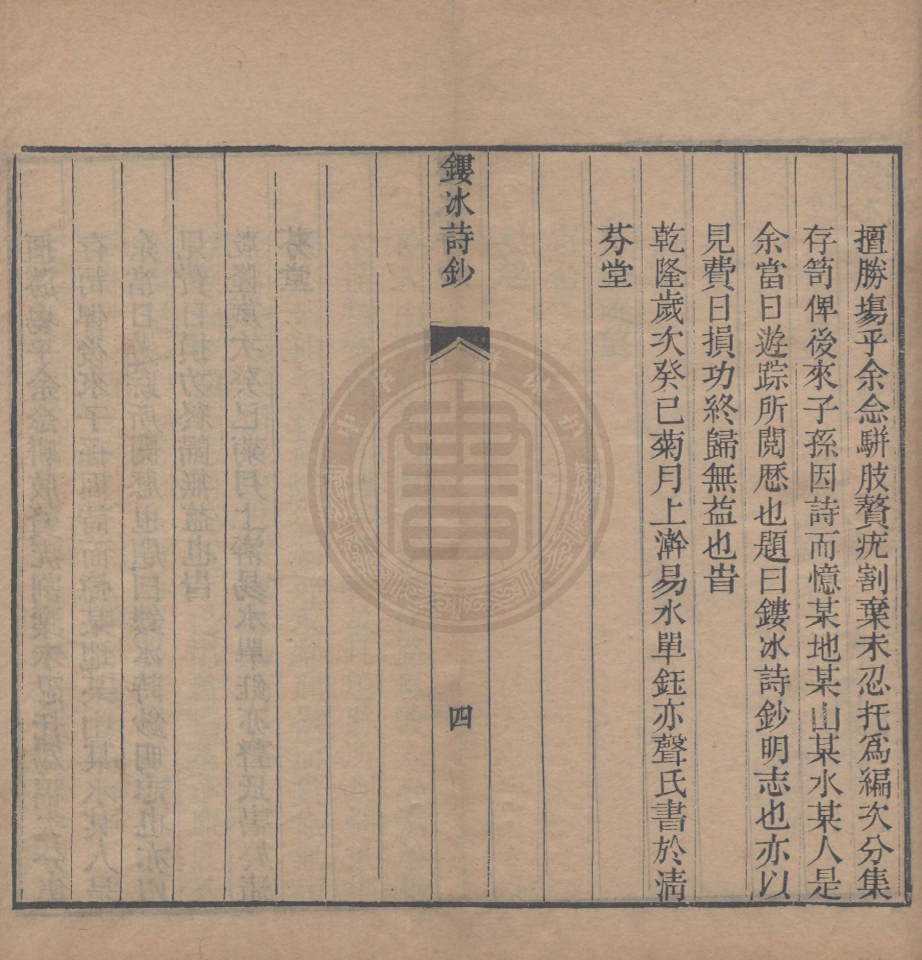 擅勝塲乎余念駢肢贅疣割棄未忍托爲編次分集
存笥俾後來子孫因詩而憶某地某山某水某人是
余當日遊踪所閱歷也題曰鏤冰詩鈔明志也亦以
見費日損功終歸無益也旹
乾隆歲次癸巳菊月上澣易水單鈺亦聲氏書於淸
芬堂
鏤冰詩鈔
四